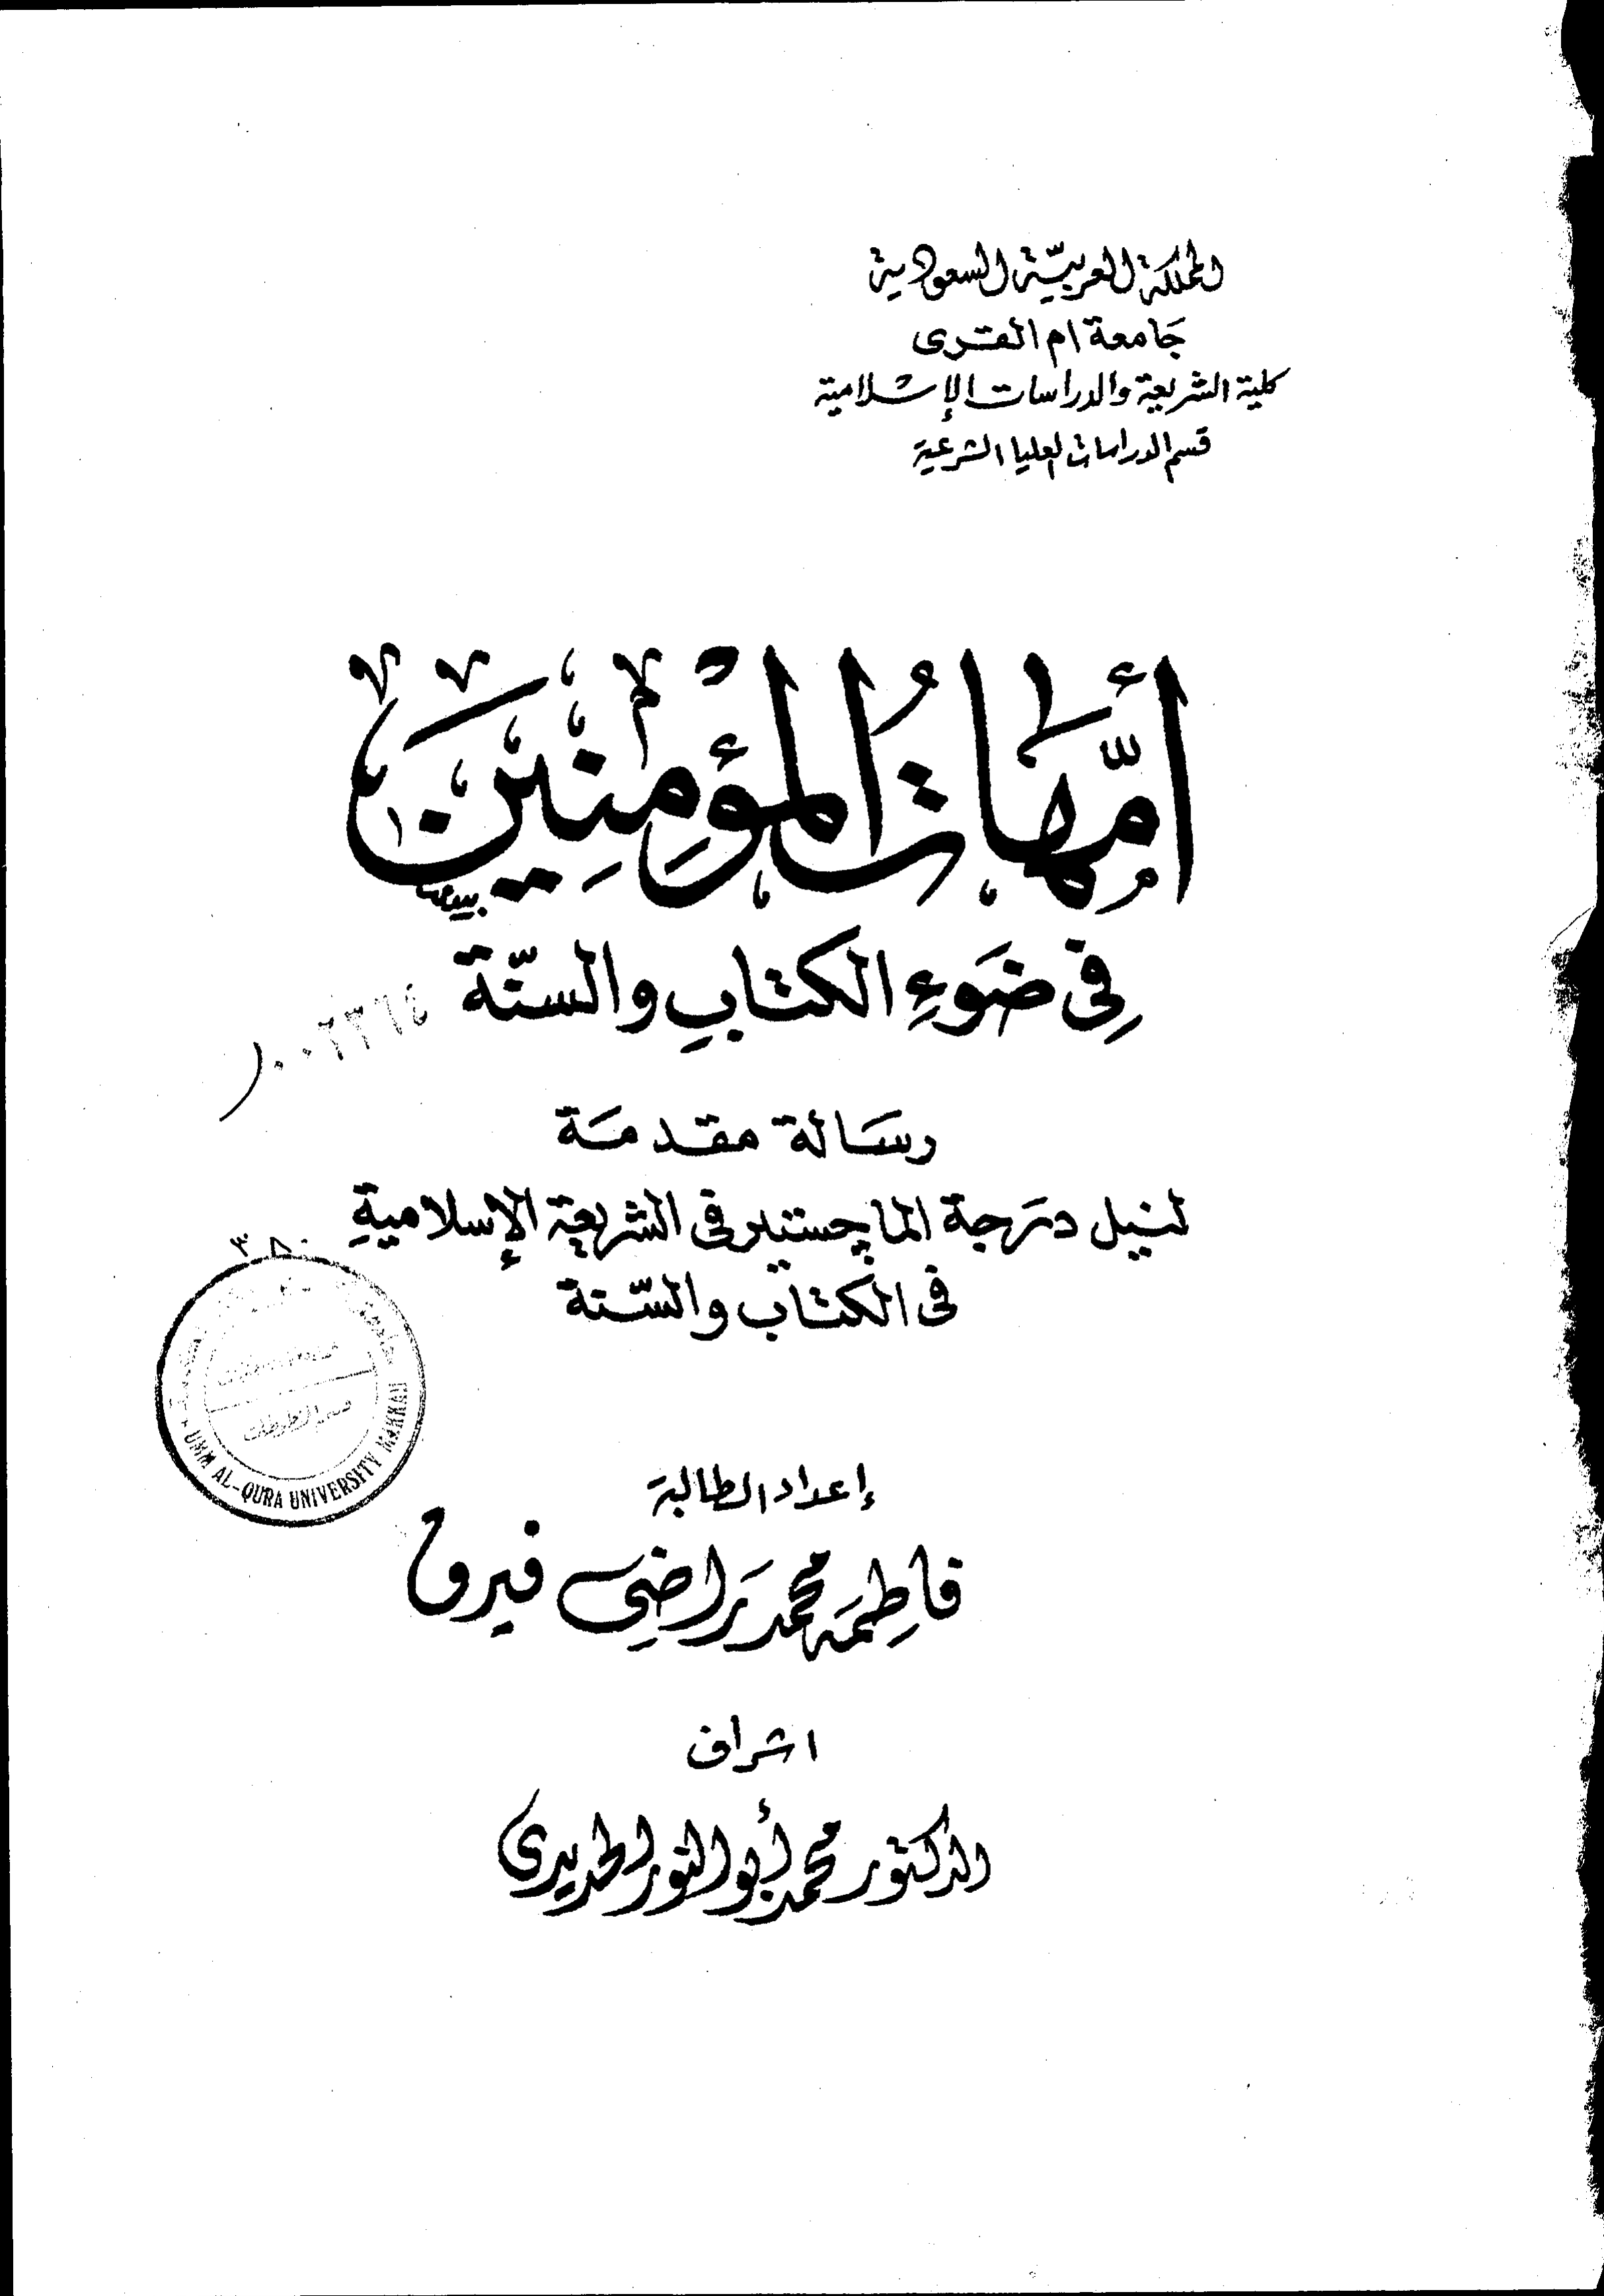 المملكة العربيّة السعودية
جَامعة ام القرى
كلية الشريعة والدراسات الإسْلامية
قسم الدراسات العليا الشرعية
أُمَّهَاتُ المُؤْمِنِينَ
فِى ضَوءِ الكتابِ والسنّة
١٠٠٢٣٦٤
رسَالة مقدمَة
لنيل درَجة الماجستير فى الشريعة الإسلاميةِ
فى الكتاب والسّنة
٣٨٠
UMM AL-QURA UNIVERSITY MAKKAH
قسم المخطوطات
إعداد الطالبة
فاطِمَه محمد رَاضِى فيرق
اشراف
الدكتور محمد أبو النور الحديدى